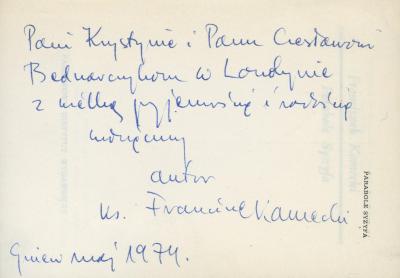 Pani Krystynie i Panu Czesławowi
Bednarczykom w Londynie
z wielką przyjemnością i radością
wdzięczny
autor
ks. Franciszek Kamecki
Gniew maj 1974.
PARABOLE SYZYFA